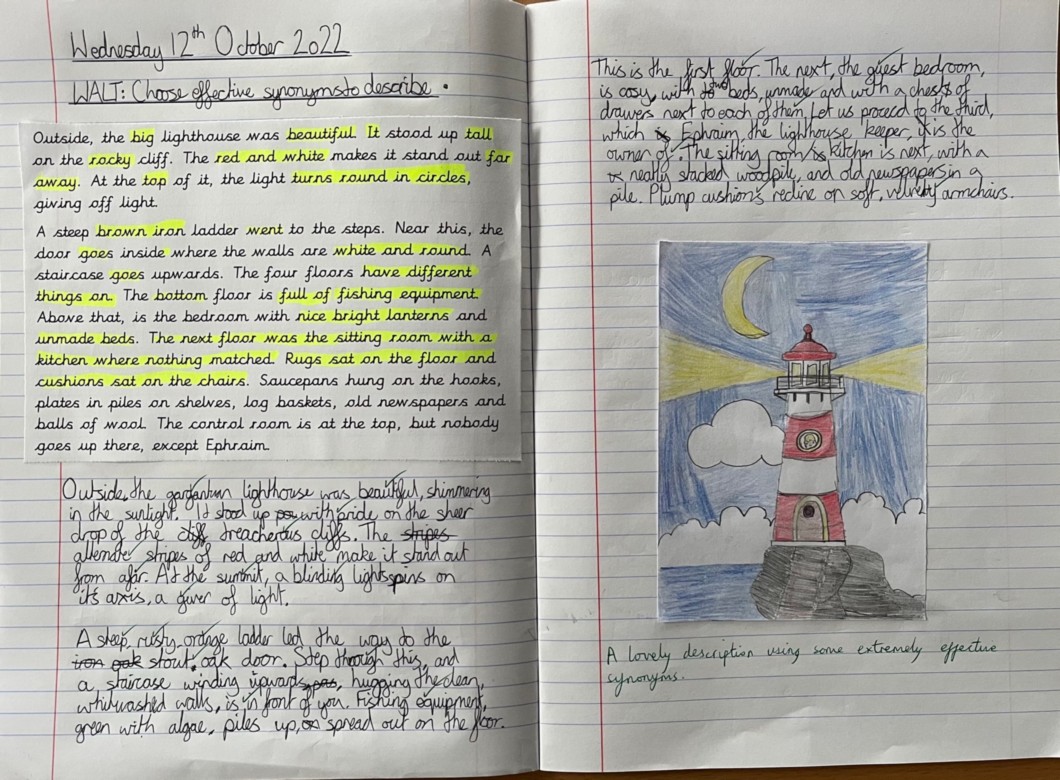 Wednesday 12th October 2022
WALT: Choose effective synonyms to describe.
Outside, the big lighthouse was beautiful. It stood up tall
on the rocky cliff. The red and white makes it stand out far
away. At the top of it, the light turns round in circles,
giving off light.
A steep brown iron ladder went to the steps. Near this, the
door goes inside where the walls are white and round. A
staircase goes upwards. The four floors have different
things on. The bottom floor is full of fishing equipment.
Above that, is the bedroom with nice bright lanterns and
unmade beds. The next floor was the sitting room with a
kitchen where nothing matched. Rugs sat on the floor and
cushions sat on the chairs. Saucepans hung on the hooks,
plates in piles on shelves, log baskets, old newspapers and
balls of wool. The control room is at the top, but nobody
goes up there, except Ephraim.
Outside, the gargantun lighthouse was beautiful, shimmering
in the sunlight. It stood up with pride on the sheer
drop of the treacherous cliffs. The stripes
alternate stripes of red and white make it stand out
from afar. At the summit, a blinding light spins on
its axis, a giver of light.
A steep, rusty-orange ladder led the way to the
iron oak stout, oak door. Step through this, and
a staircase winding upwards, hugging the clean,
whitwashed walls, is in front of you. Fishing equipment,
green with algae, piles up, spread out on the floor.
This is the first floor. The next, the guest bedroom,
is cosy, with two beds, unmade and with a chests of
drawers next to each of them. Let us proceed to the third,
which is Ephraim, the lighthouse keeper, it is the
owner of. The sitting room/kitchen is next, with a
neatly stacked woodpile, and old newspapers in a
pile. Plump cushions recline on soft, velvety armchairs.
A lovely description using some extremely effective
synonyms.